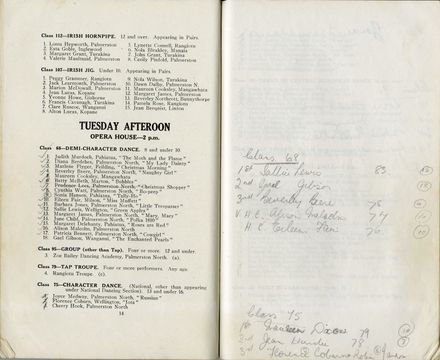 Class 112—IRISH HORNPIPE. 12 and over. Appearing in Pairs.
1. Lorna Hepworth, Palmerston
2. Zona Goble, Inglewood
3. Margaret Grant, Turakina
4. Valerie Maulsund, Palmerston
5. Lynette Connell, Rangiora
6. Nola Bleakley, Manaia
7. John Grant, Turakina
8. Cecily Pinfold, Palmerston
Class 107—IRISH JIG. Under 10. Appearing in Pairs.
1. Peggy Grammer, Rangiora
2. Jack Learmonth, Palmerston
3. Marion McDowall, Palmerston
4. Jean Lucas, Kopane
5. Yvonne Howe, Gisborne
6. Francis Cavanagh, Turakina
7. Clare Runcoe, Wanganui
8. Alton Lucas, Kopane
9. Nola Wilson, Turakina
10. Dawn Dalby, Palmerston N.
11. Maureen Cooksley, Mangawhata
12. Margaret James, Palmerston
13. Beverley Northcott, Bunnythorpe
14. Pamela Rose, Rangiora
15. Jean Berquist, Linton
TUESDAY AFTEROON
OPERA HOUSE—2 p.m.
Class 68—DEMI-CHARACTER DANCE. 8 and under 10.
1. Judith Murdoch, Pahiatua, "The Moth and the Flame"
2. Diana Bredebes, Palmerston North, "My Lady Dainty"
3. Marlene Flyger, Feilding, "Christmas Morning"
4. Beverley Byere, Palmerston North, "Naughty Girl"
5. Maureen Cooksley, Mangawhata
6. Betty McBeth, Marton, "Bubbles"
7. Prudence Lees, Palmerston North, "Christmas Shopper"
8. Cynthia West, Palmerston North, "Bo-peep"
9. Sonia Hansen, Pahiatua, "Tally-Ho"
10. Eileen Fair, Milson, "Miss Moffett"
11. Barbara Jones, Palmerston North, "Little Trespasser"
12. Sallie Lewis, Wellington, "Green Apples"
13. Margaret James, Palmerston North, "Mary, Mary"
14. June Child, Palmerston North, "Polka 1850"
15. Margaret Delahunty, Pahiatua, "Roses are Red"
16. Alison Malcolm, Palmerston North
17. Patricia Bennett, Palmerston North, "Cowgirl"
18. Gael Gibson, Wanganui, "The Enchanted Pearls"
Class 95—GROUP (other than Tap). Four or more. 12 and under.
3. Zoe Bailey Dancing Academy, Palmerston North. (a).
Class 79—TAP TROUPE. Four or more performers. Any age.
4. Rangiora Troupe. (c).
Class 75—CHARACTER DANCE. (National, other than appearing
under National Dancing Section). 13 and under 16.
1. Joyce Medway, Palmerston North, "Russian"
2. Florence Coburn, Wellington, "Jota"
3. Cherry Hook, Palmerston North
14
Class 68
1st Sallie Lewis 83
2nd Gael Gibson
3rd Beverley 78
H.C. Alison Malcolm 77
H.C. Eileen Fair 76
Class 75
1st Maureen Dixon 79
2nd Jean 78
3rd Florence Coburn